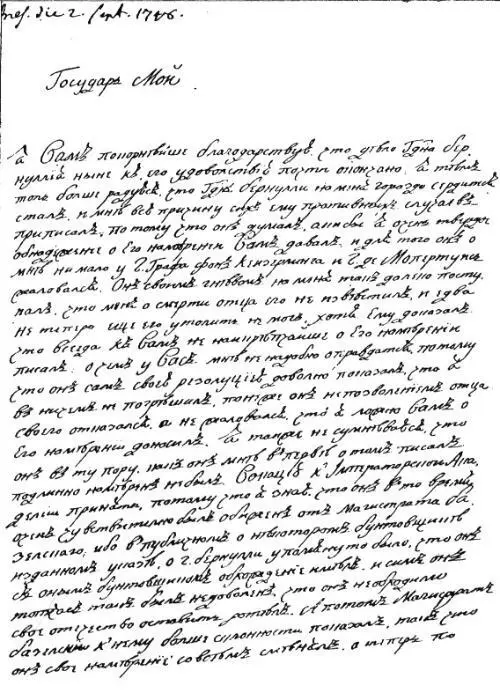 Pres. die 2. Sept. 1746.
Государь Мой
Я Вамъ покорнѣйше благодарствую, что дѣло Гдна Бер
нуллїя ныне къ его удовольствїю почти окончано. Я тѣмъ
толь больше радуюсь, что Гднъ Бернулли на меня гораздо сердитъ
сталъ, и мнѣ всю причину сихъ ему противныхъ случаевъ
приписалъ, потому что онъ думалъ, аки бы я очень твердое
обнадеженїе о его намѣренїи Вамъ давалъ, и для того онъ о
мнѣ ни мало у Г. Графа фонъ Кейзерлинга и Г. де Мопертуия
жаловался. Онъ своимъ гнѣвомъ на меня такъ далеко посту
палъ, что меня о смерти отца его не извѣстилъ, и едва
не теперь еще его утолить не могъ, хотя ему доказалъ
что всегда къ Вамъ не о его намѣренїи
писалъ: о чемъ у Васъ мнѣ не надобно оправдатся, потому
что онъ самъ своею резолуцїею довольно показалъ, что я
въ ничемъ не погрѣшилъ, понеже онъ непозволенїемъ отца
своего отказался, а не жаловался, что я ложно Вамъ о
его намѣренїи доносилъ. Я также не сумнѣваюся, что
онъ въ ту пору, какъ онъ мнѣ впервые о томъ писалъ
подлинно намѣренъ былъ Вокацїю к' Императорской Ака
демїи принять, потому что я знаю, что онъ въ то время
очень чувствительно былъ обиженъ отъ Магистрата Ба
зелскаго, ибо въ публичномъ о нѣкоторомъ бунтовщикѣ
изданномъ указѣ, о Г. Бернулли упомянуто было, что онъ
съ онымъ бунтовщикомъ обхожденїе имѣлъ, и симъ онъ
тотчасъ такъ былъ недоволенъ, что онъ необходимо
свое отечество оставить готовъ. А потомъ Магистратъ
базелскїй к' нему больше склонности показалъ, такъ что
онъ свое намѣренїе совсѣмъ смѣнилъ, а теперь по